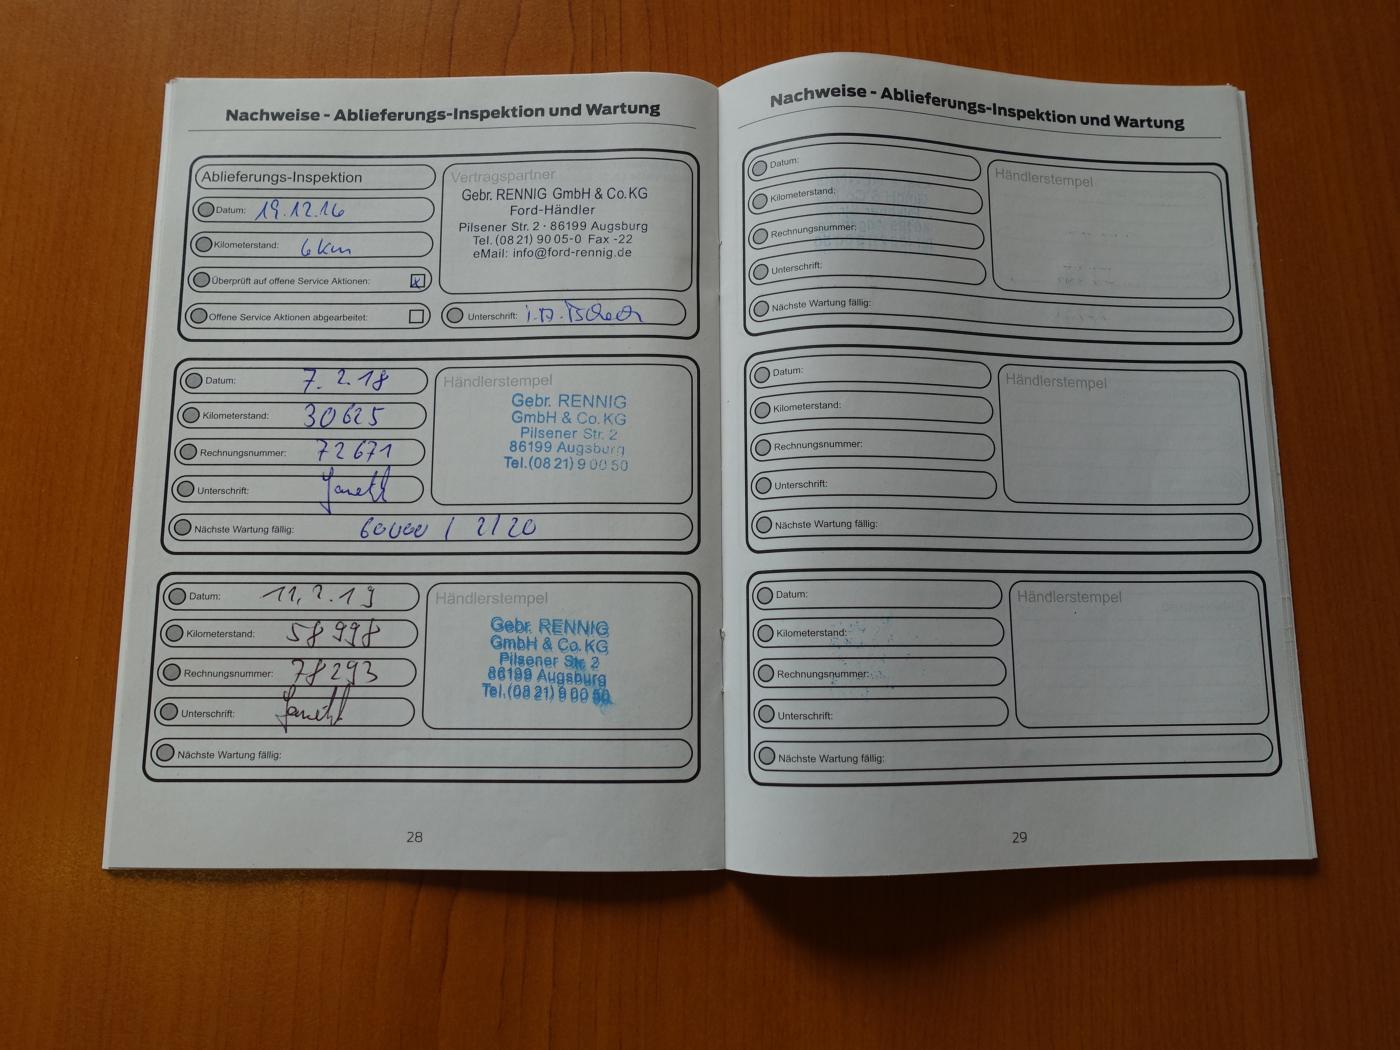 Nachweise - Ablieferungs-Inspektion und Wartung
Ablieferungs-Inspektion
Datum: 19.12.16
Kilometerstand: 6 km
Überprüft auf offene Service Aktionen: x
Offene Service Aktionen abgearbeitet:
Vertragspartner
Gebr. RENNIG GmbH & Co.KG
Ford-Händler
Pilsener Str. 2 · 86199 Augsburg
Tel. (08 21) 90 05-0 Fax -22
eMail: info@ford-rennig.de
Unterschrift:
Datum: 7.2.18
Kilometerstand: 30625
Rechnungsnummer: 72671
Unterschrift:
Nächste Wartung fällig: 60000 / 2/20
Händlerstempel
Gebr. RENNIG
GmbH & Co. KG
Pilsener Str. 2
86199 Augsburg
Tel. (08 21) 9 00 50
Datum: 11.2.19
Kilometerstand: 58998
Rechnungsnummer: 78293
Unterschrift:
Nächste Wartung fällig:
Händlerstempel
Gebr. RENNIG
GmbH & Co. KG
Pilsener Str. 2
86199 Augsburg
Tel. (08 21) 9 00 50
28
Nachweise - Ablieferungs-Inspektion und Wartung
Datum:
Kilometerstand:
Rechnungsnummer:
Unterschrift:
Nächste Wartung fällig:
Händlerstempel
Datum:
Kilometerstand:
Rechnungsnummer:
Unterschrift:
Nächste Wartung fällig:
Händlerstempel
Datum:
Kilometerstand:
Rechnungsnummer:
Unterschrift:
Nächste Wartung fällig:
Händlerstempel
29